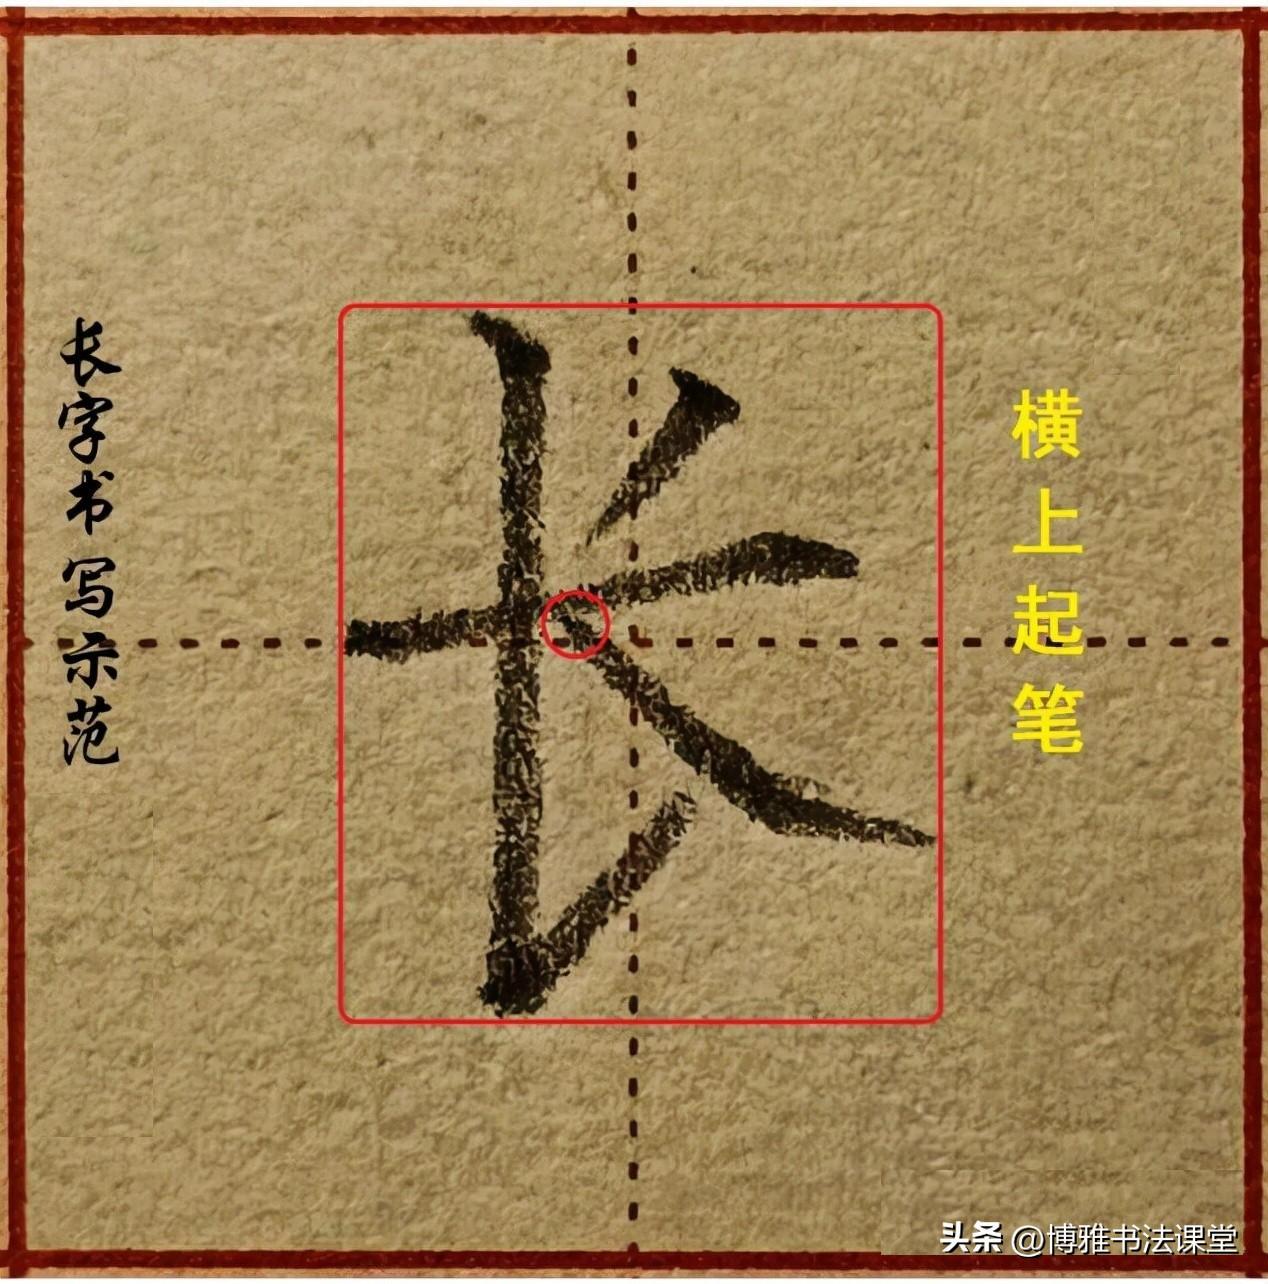 长字书写示范
长
横上起笔
头条 @博雅书法课堂